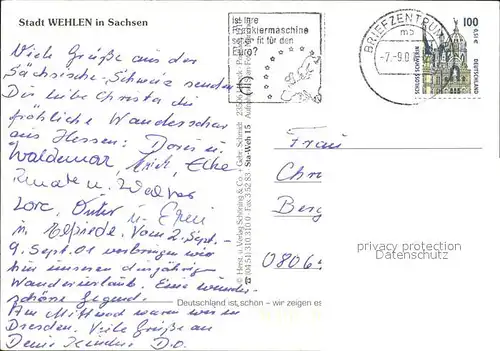 Stadt WEHLEN in Sachsen
Viele Grüße aus der
Sächsische-Schweiz senden
Dir liebe Christa die
fröhliche Wanderschar
aus Hessen: Doris u.
Waldemar, Erich, Elke
Renate u. Walter
Lore, Dieter u. Erni
m. Elfriede. Vom 2. Sept. -
9. Sept. 01 verbringen wir
hier unseren diesjährigen
Wanderurlaub. Eine wunder-
schöne Gegend.
Am Mittwoch waren wir in
Dresden. Viele Grüße an
Deine Kinder D.O.
Deutschland ist schön – wir zeigen es
Ist Ihre
Frankiermaschine
schon fit für den
Euro?
BRIEFZENTRUM
mb
-7.-9.0
100
0,51 €
SCHLOSS SCHWERIN
DEUTSCHLAND
© Herst. u. Verlag Schöning & Co. + Gebr. Schmidt
Sta-Weh 15
Frau
Chr
Berg
0806
privacy protection
Datenschutz